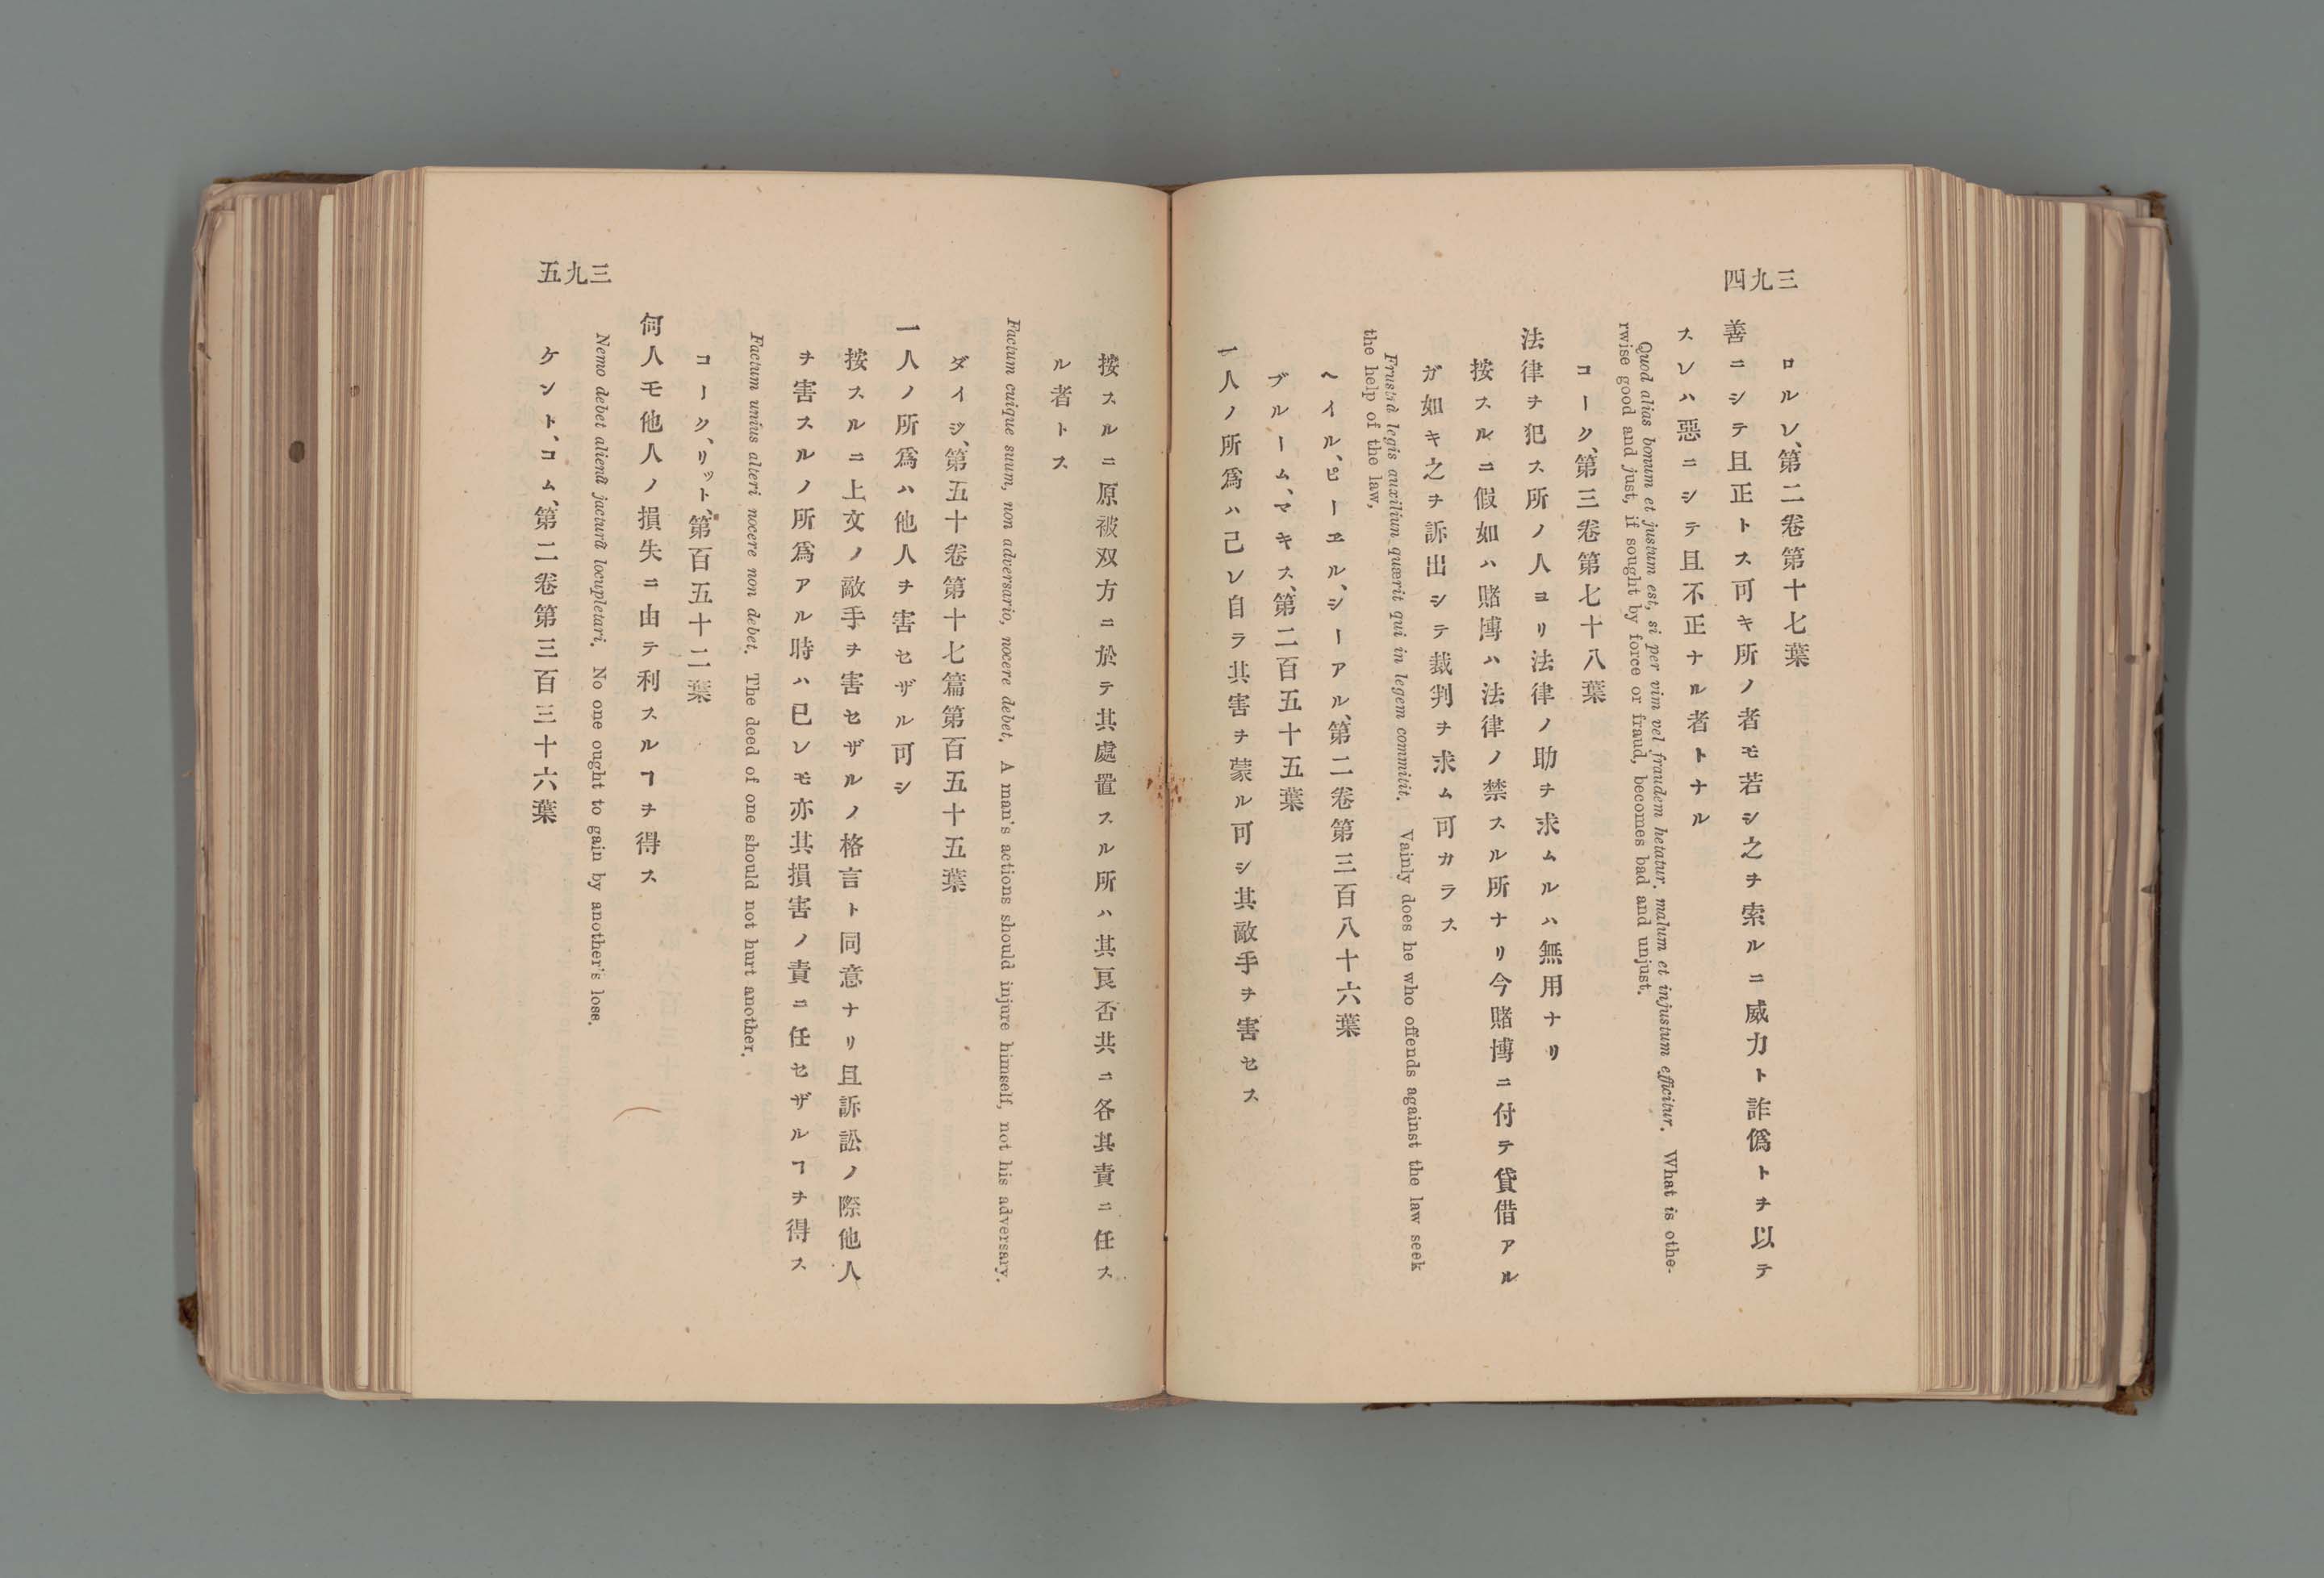 四九三
ロルレ、第二卷第十七葉
善ニシテ且正トス可キ所ノ者モ若シ之ヲ索ルニ威力ト詐僞トヲ以テ
スレハ惡ニシテ且不正ナル者トナル
Quod alias bonum et justum est, si per vim vel fraudem hetatur. malum et injustum efficitur. What is othe-
rwise good and just, if sought by force or fraud, becomes bad and unjust.
コーク、第三卷第七十八葉
法律ヲ犯ス所ノ人ヨリ法律ノ助ヲ求ムルハ無用ナリ
按スルニ假如ハ賭博ハ法律ノ禁スル所ナリ今賭博ニ付テ貸借アル
ガ如キ之ヲ訴出シテ裁判ヲ求ム可カラス
Frustrâ legis auxilium quærit qui in legem commitit. Vainly does he who offends against the law seek
the help of the law,
ヘイル、ピーヱル、シーアル、第二卷第三百八十六葉
ブルーム、マキス、第二百五十五葉
一人ノ所爲ハ己レ自ラ其害ヲ蒙ル可シ其敵手ヲ害セス
按スルニ原被双方ニ於テ其處置スル所ハ其良否共ニ各其責ニ任ス
ル者トス
Factum cuique suum, non adversario, nocere debet. A man's actions should injure himself, not his adversary.
ダイジ、第五十卷第十七篇第百五十五葉
一人ノ所爲ハ他人ヲ害セザル可シ
按スルニ上文ノ敵手ヲ害セザルノ格言ト同意ナリ且訴訟ノ際他人
ヲ害スルノ所爲アル時ハ已レモ亦其損害ノ責ニ任セザルヿヲ得ス
Factum unius alteri nocere non debet. The deed of one should not hurt another.
コーク、リット、第百五十二葉
何人モ他人ノ損失ニ由テ利スルヿヲ得ス
Nemo debet alienâ jacturâ locupletari. No one ought to gain by another's lose.
ケント、コム、第二卷第三百三十六葉
五九三